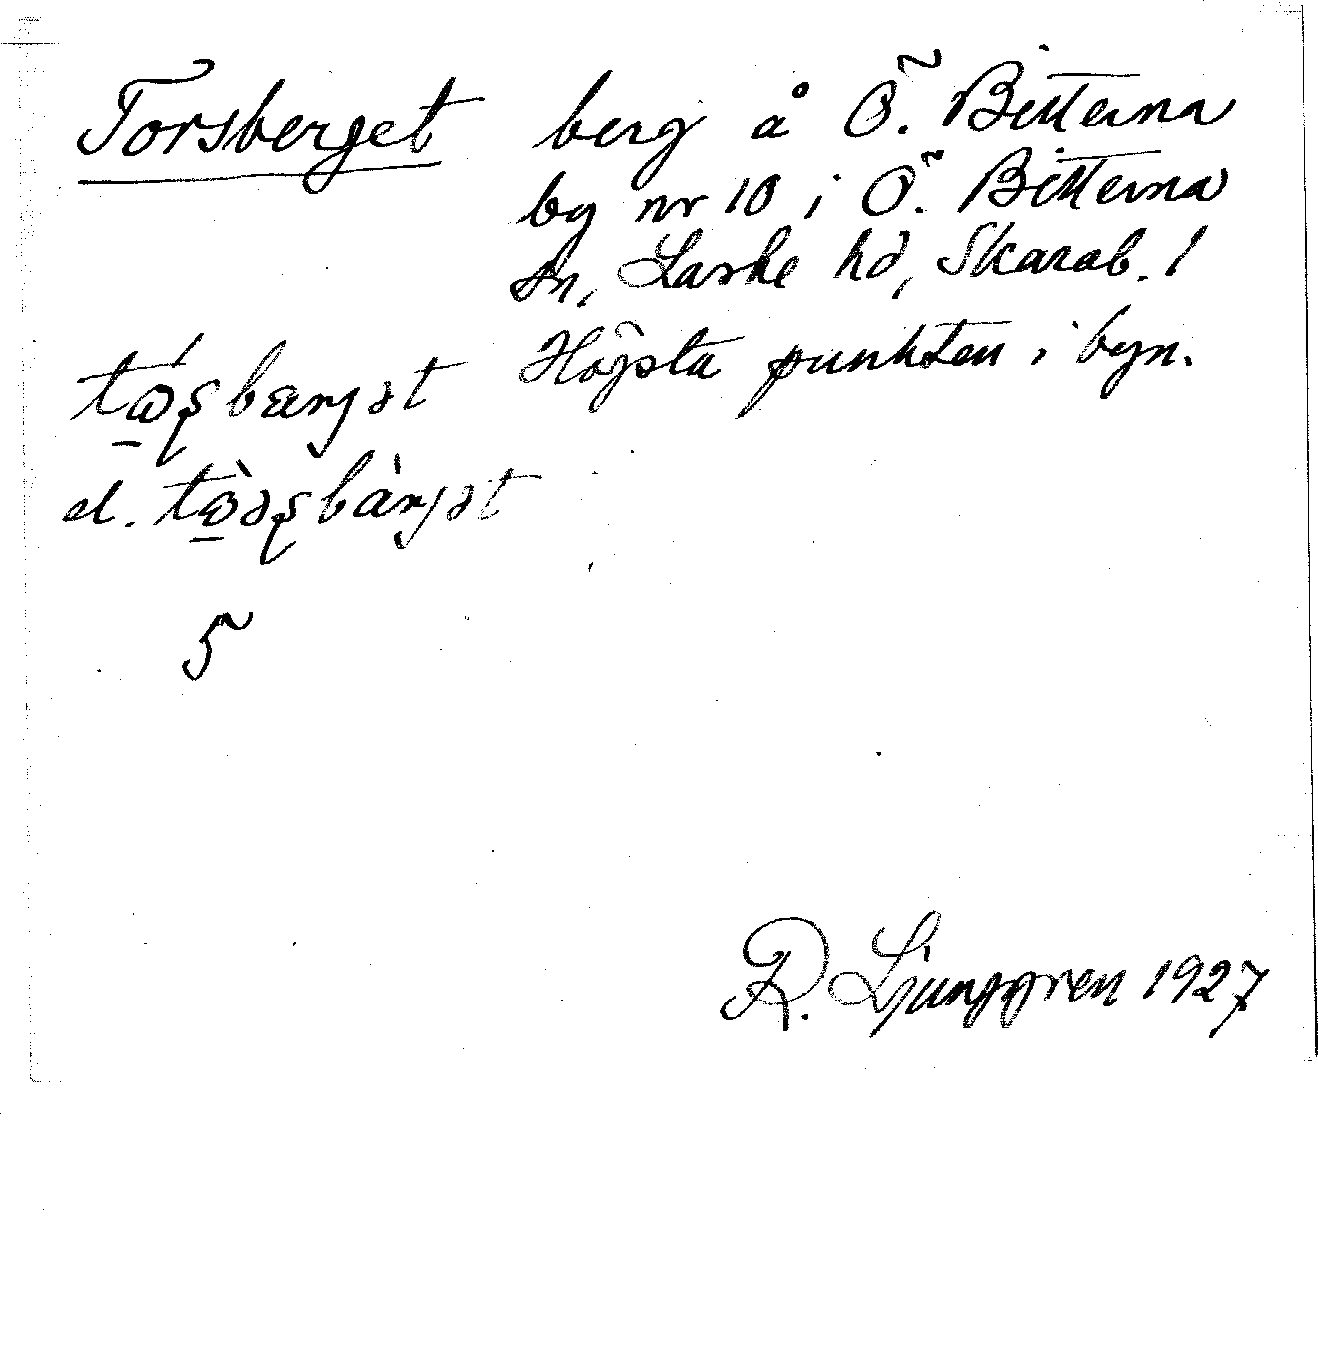 Torsberget berg å Ö. Bitterna
by nr 10 i Ö. Bitterna
sn, Laske hd, Skarab. l
Högsta punkten i byn.
el.
5
R. Ljunggren 1927